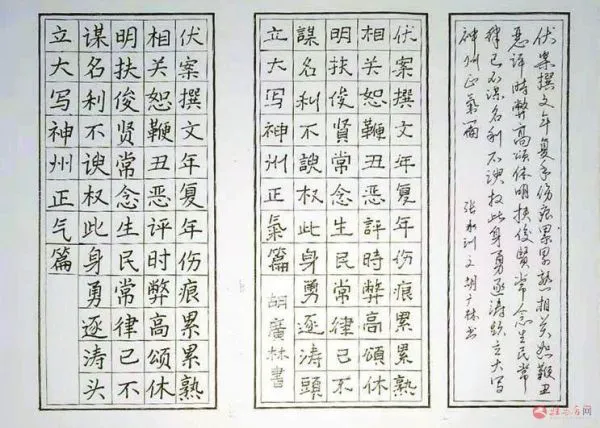 伏案撰文年复年伤痕累累熟相关恕鞭丑
恶评时弊高颂休明扶俊贤常念生民常
律己不谋名利不谀权此身勇逐涛头立大写
神州正气篇 张 训文胡广林书
伏案撰文年復年傷痕累累熟
相关恕鞭丑恶評時弊高頌休
明扶俊賢常念生民常律己不
謀名利不諛權此身勇逐濤頭
立大写神州正氣篇 胡廣林書
伏案撰文年复年伤痕累累熟
相关恕鞭丑恶评时弊高颂休
明扶俊贤常念生民常律己不
谋名利不谀权此身勇逐涛头
立大写神州正气篇
驻马店网